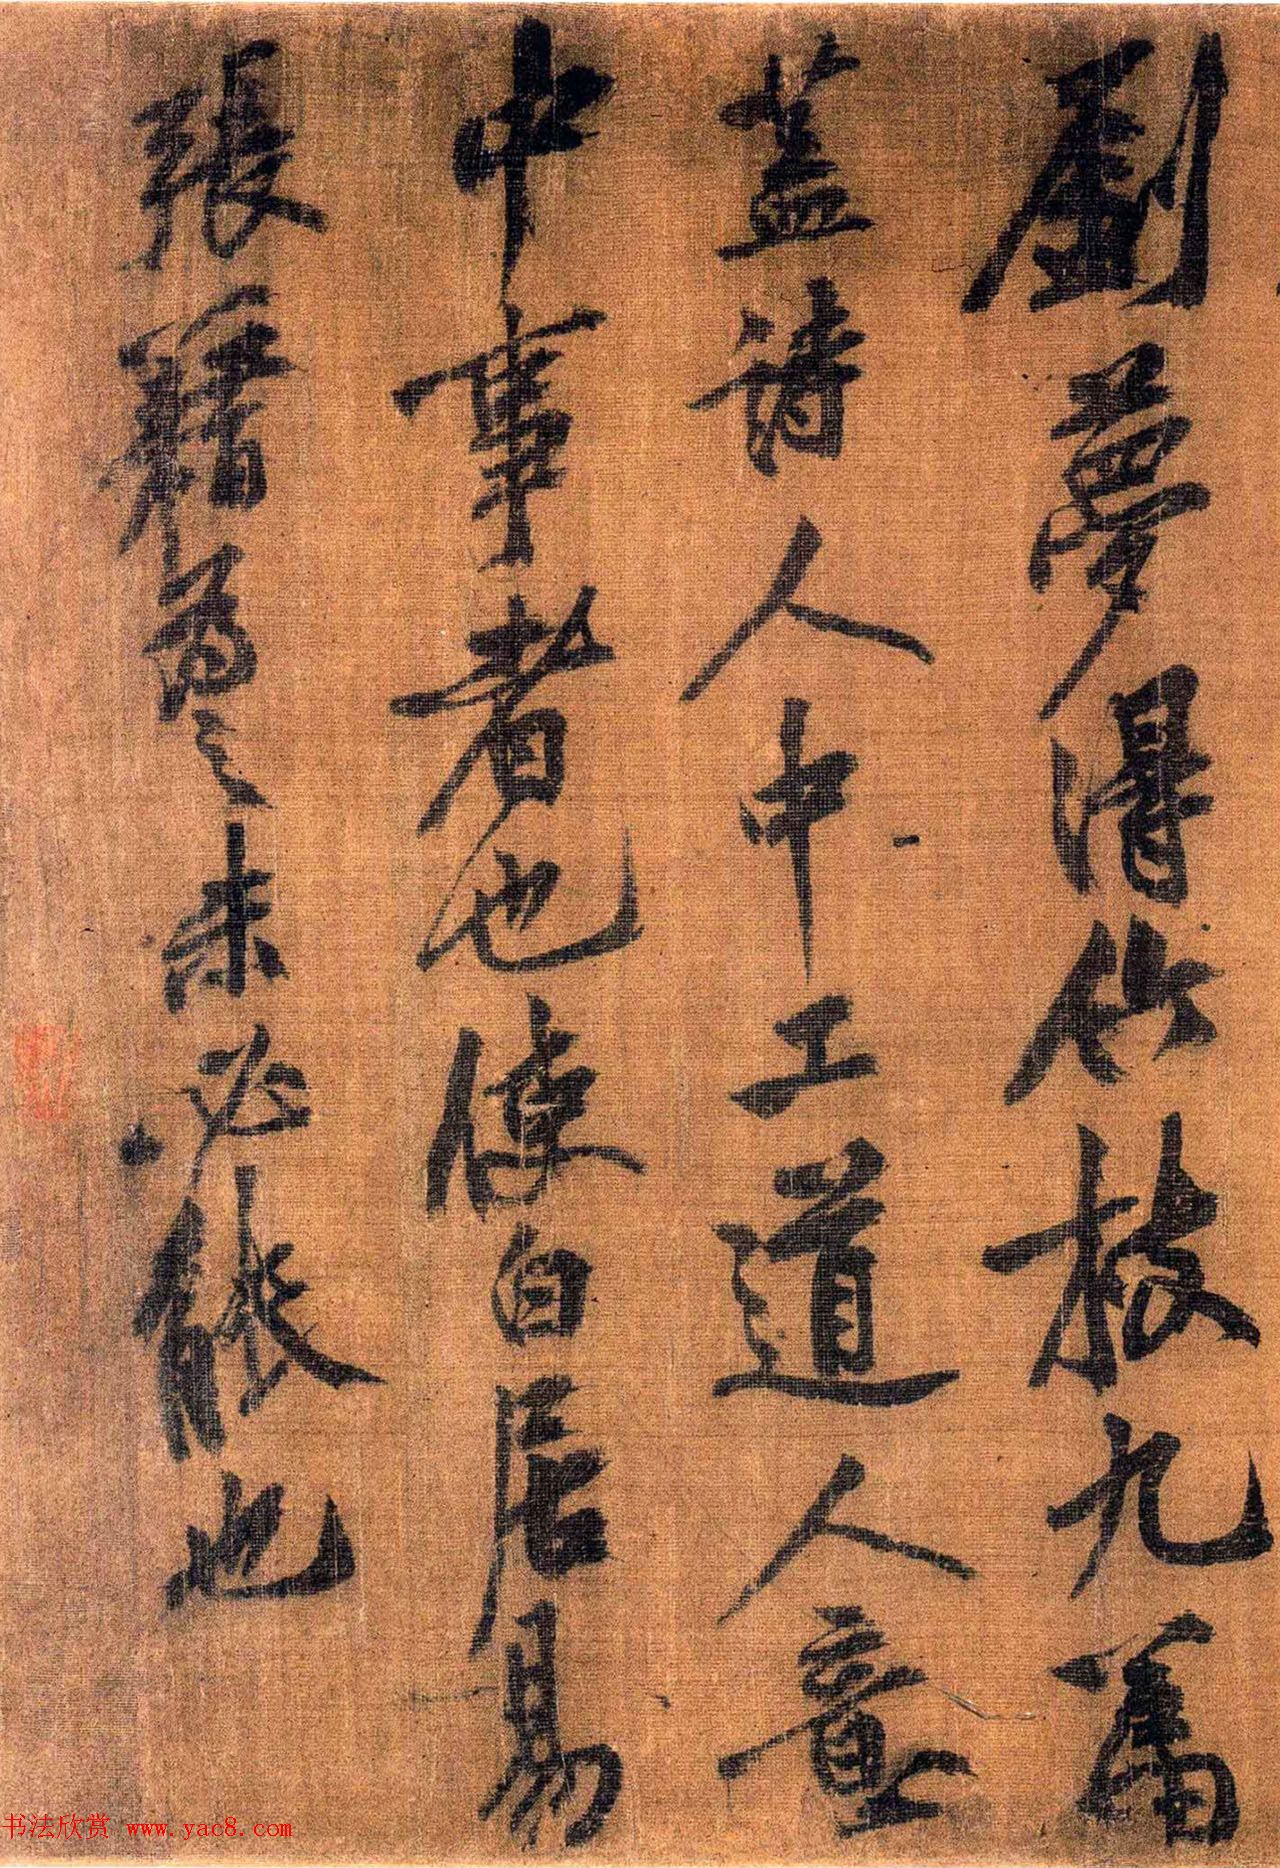 劉夢得竹枝九篇
蓋詩人中工道人意
中事者也使白居易
張籍為之未必能也
书法欣赏 www.yac8.com